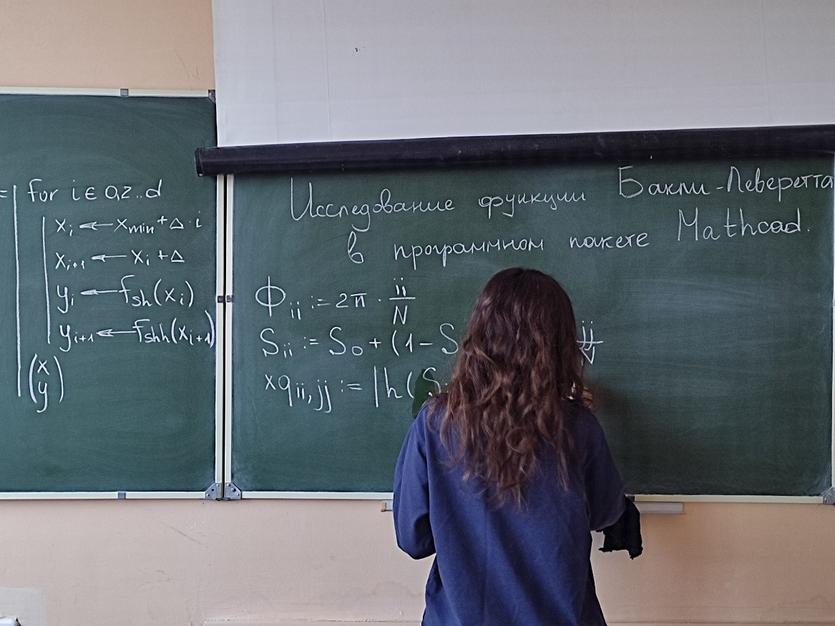 = for i ∈ 0,2..d
xᵢ ← xₘᵢₙ + Δ · i
xᵢ₊₁ ← xᵢ + Δ
yᵢ ← fsh(xᵢ)
yᵢ₊₁ ← fshh(xᵢ₊₁)
(x
y)
Исследование функции Бакли-Леверетта
в программном пакете Mathcad.
Φii := 2π · ii/N
Sii := S₀ + (1 - S jj/N
xqii,jj := |h(S